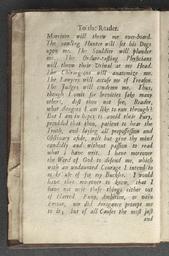 To the Reader.
Marriners will throw me over-board.
The Hunter will set his Dogs
upon me. The Souldier will plunder
me. The Physicians
will throw their Urinal at my Head.
The Chirurgions will anatomize me.
The Lawyers will accuse me of Treason.
The Judges will condemn me. Thus,
though I omit for brevities sake many
others, dost thou not see, Reader,
what dangers I am like to run through?
But I am in hopes to avoid their fury,
provided that thou, patient to hear the
Truth, and laying all prepossession and
Obstinacy aside, wilt but give thy mind
candidly and without passion to read
what I have writ. I have moreover
the Word of God to defend me, which
with an undaunted Courage I intend to
make use of for my Buckler. I would
have thee moreover to know, that I
have not writ these things either out
of Hatred, Envy, Ambition, or
Errour, nor did Arrogance prompt me
to it; but of all Causes the most just
and